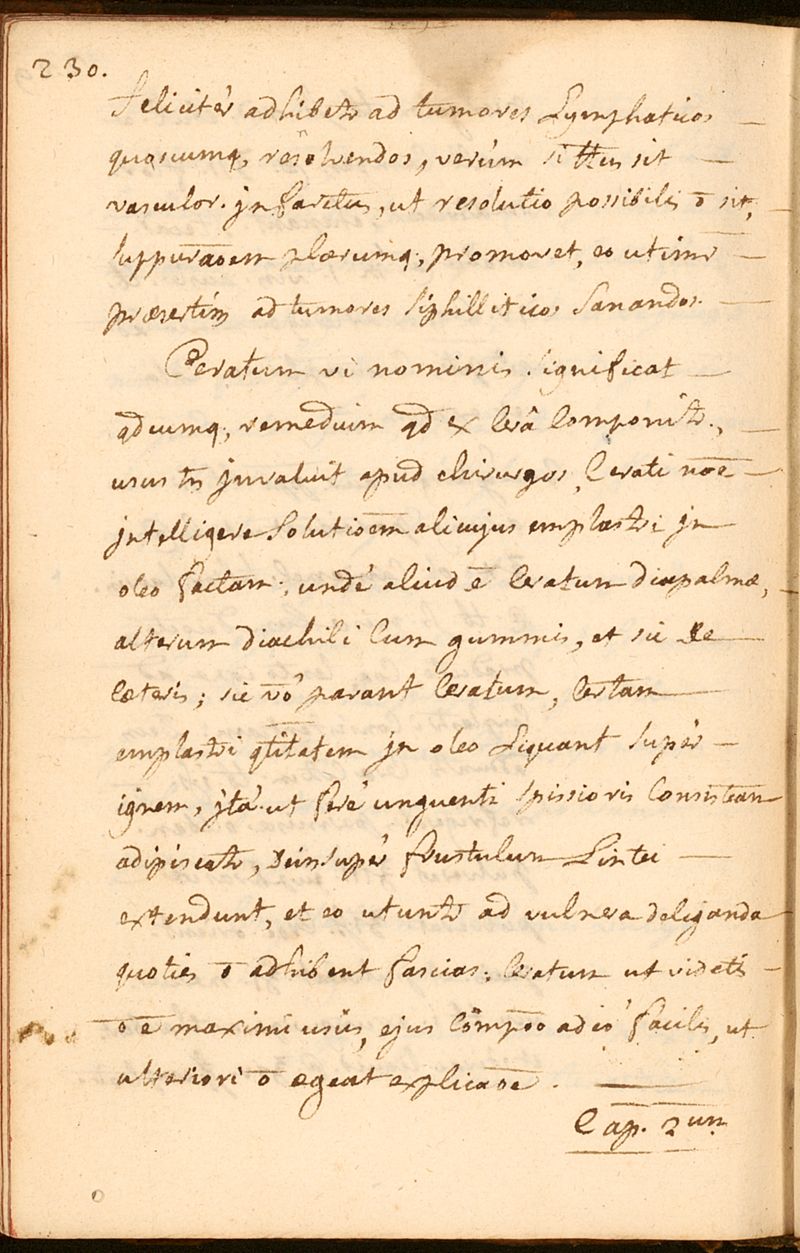 230.
Felicitèr adhibetr ad tumores Lymphaticos
quoscumq, resolvendos, verùm si ttus sit
vasculor. jnfarctus, ut resolutio possibilis ō sit,
suppuraōem plærumq;, promovet, eo utimr
præsertìm ad tumores siphilliticos Sanandos.
Ceratum vi nominis significat
qdcumq;, remedium qd ex Cerâ Componitr.,
usus tn jnvaluit apud chirurgos, Cerati nōe
jntelligere Solutiōem alicujus emplastri jn
oleo factam; undè aliud ē Ceratum diapalmæ,
alterum diachili Cum gummis, et sic de
Cæteris; sic vō parant Ceratum, Certam
emplastri qtitatem jn oleo Liquant supèr
ignem, jtà ut ferè unguenti spissioris Consisteām
adipiscatr, Dein supèr frustulum Lintei
extendunt, et eo utuntr ad vulnera deliganda
quoties ō adhibent fascias; Ceratum ut videtis
ō ē maximi usûs, ejus Compōo adeò facilis, ut
ulteriori ō egeat explicaōe.
Cap. 2um